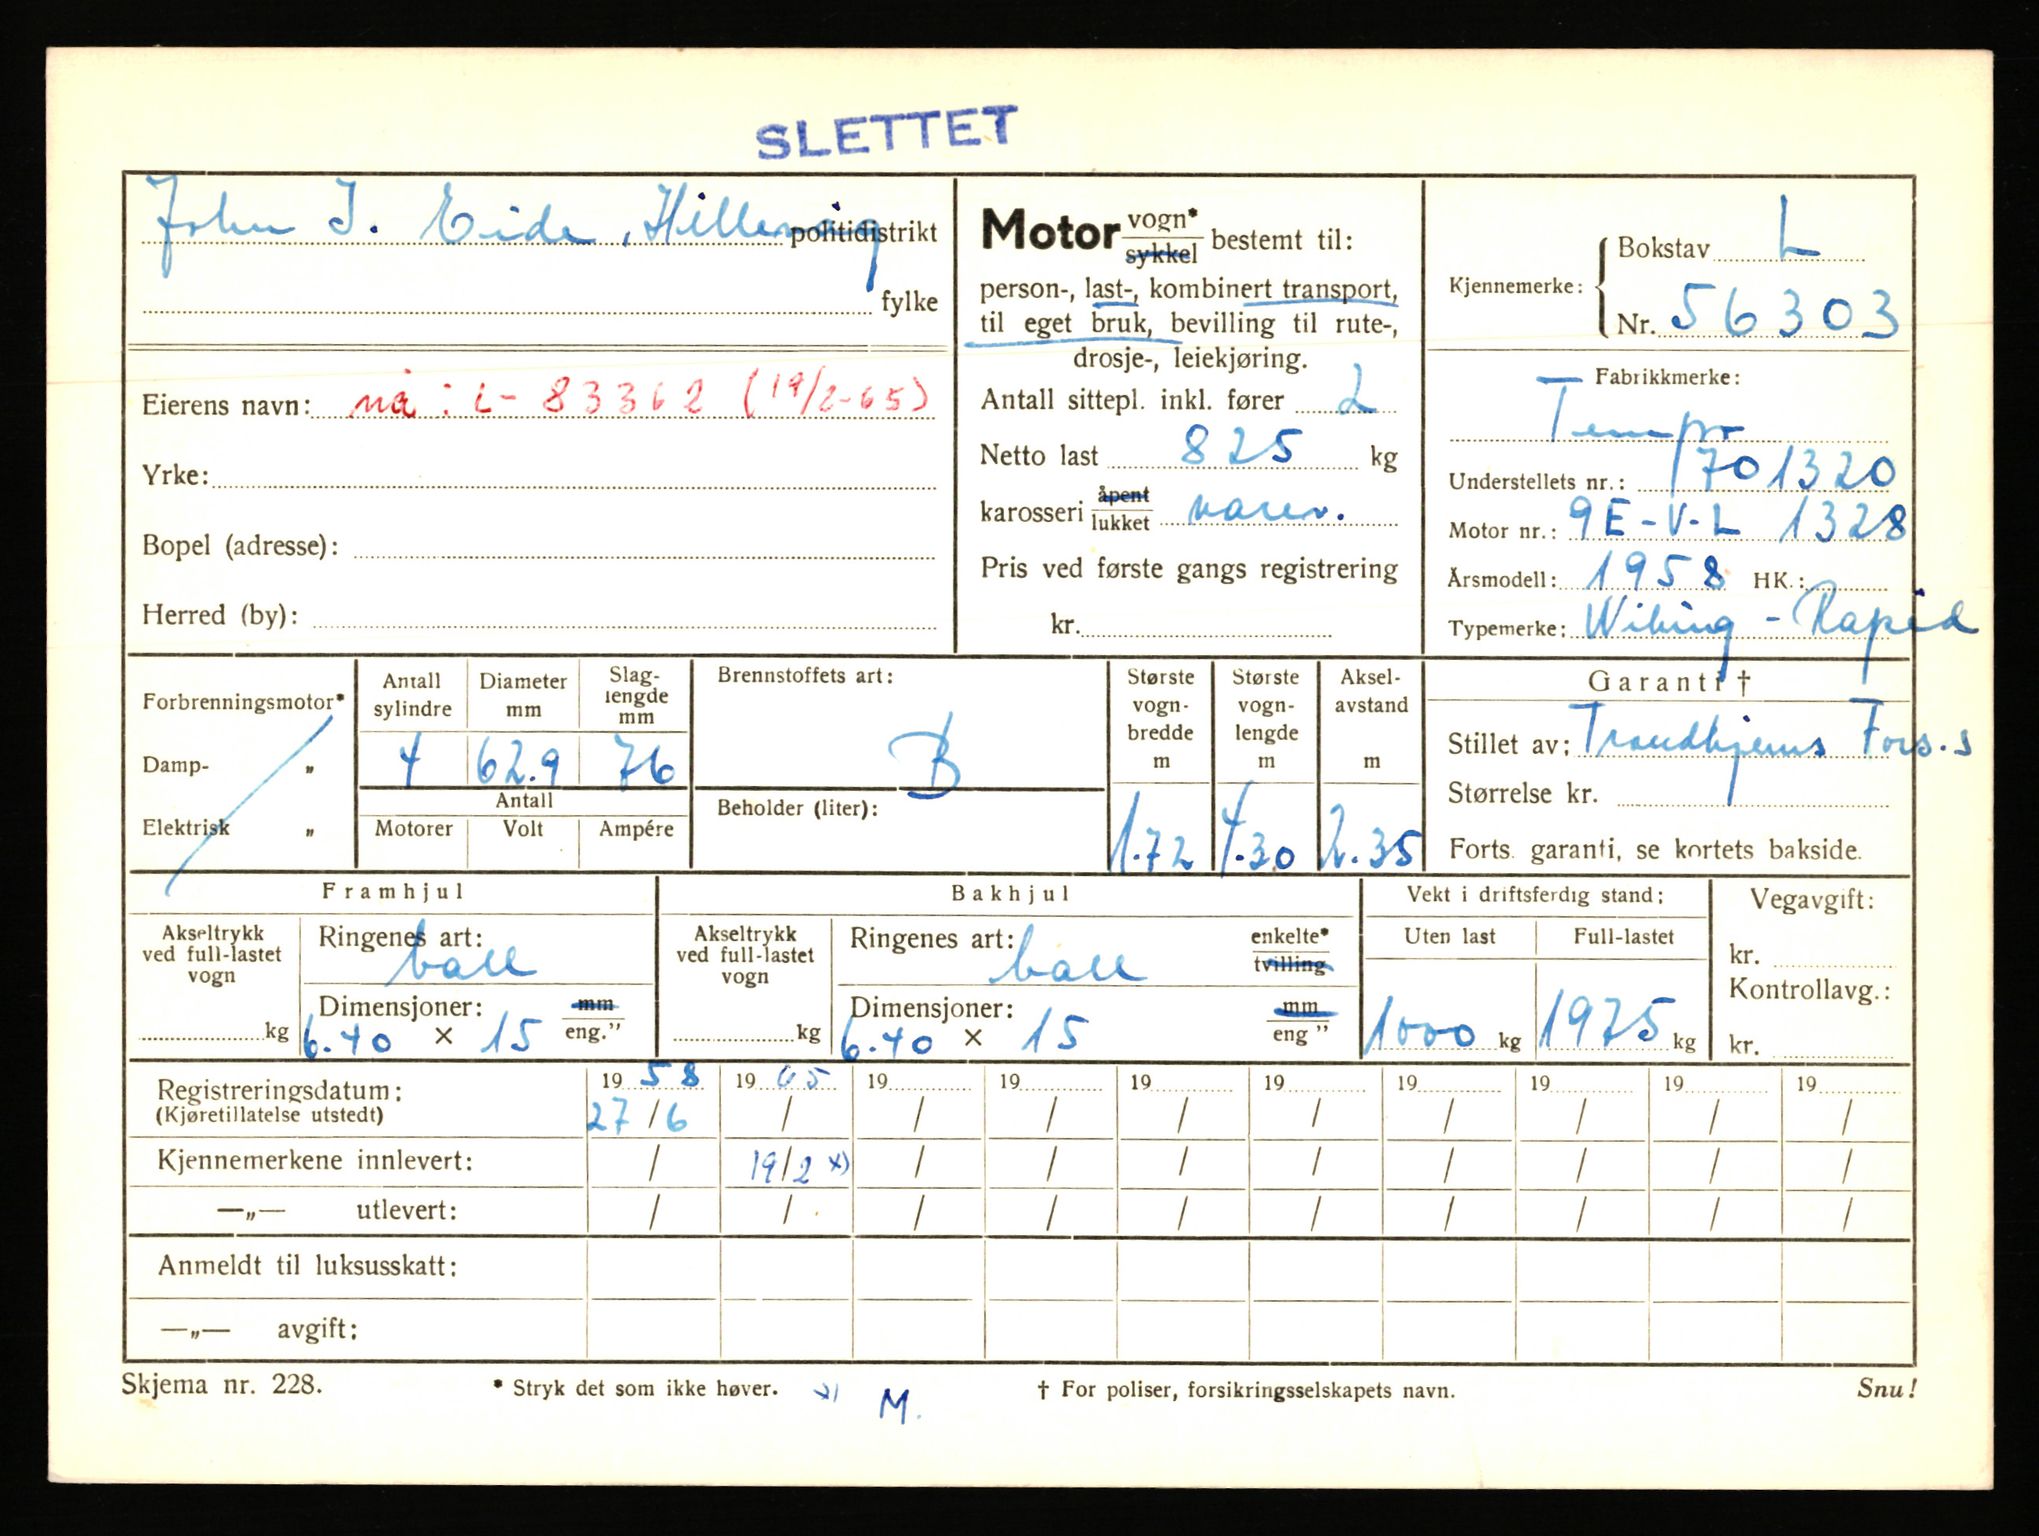 SLETTET
John I. Eide, Hillevåg politidistrikt
fylke
Eierens navn: nå: L-83362 (19/2-65)
Yrke:
Bopel (adresse):
Herred (by):
Motor vogn* sykkel bestemt til:
person-, last-, kombinert transport,
til eget bruk, bevilling til rute-,
drosje-, leiekjøring.
Antall sittepl. inkl. fører 2
Netto last 825 kg
karosseri åpent lukket varev.
Pris ved første gangs registrering
kr.
Kjennemerke: Bokstav L
Nr. 56303
Fabrikkmerke:
Tempo
Understellets nr.: 1701320
Motor nr.: 9E-V-L 1328
Årsmodell: 1958 HK.:
Typemerke: Wiking - Rapid
Garanti †
Stillet av: Trondhjems Fors.s
Størrelse kr.
Forts. garanti, se kortets bakside.
Forbrenningsmotor*
Damp- „
Elektrisk „
Antall sylindre 4
Diameter mm 62.9
Slaglengde mm 76
Antall
Motorer Volt Ampére
Brennstoffets art: B
Beholder (liter):
Største vognbredde m 1.72
Største vognlengde m 4.30
Akselavstand m 2.35
Framhjul
Akseltrykk ved full-lastet vogn kg
Ringenes art: ball
Dimensjoner: mm
6.40 × 15 eng.”
Bakhjul
Akseltrykk ved full-lastet vogn kg
Ringenes art: ball enkelte* tvilling
Dimensjoner: mm
6.40 × 15 eng ”
Vekt i driftsferdig stand:
Uten last Full-lastet
1000 kg 1975 kg
Vegavgift:
kr.
Kontrollavg.:
kr.
Registreringsdatum: 19 58 19 65 19 19 19 19 19 19 19 19
(Kjøretillatelse utstedt) 27/6 / / / / / / / / /
Kjennemerkene innlevert: / 19/2 x) / / / / / / / /
—„— utlevert: / / / / / / / / / /
Anmeldt til luksusskatt:
—„— avgift:
Skjema nr. 228. * Stryk det som ikke høver. x) M. † For poliser, forsikringsselskapets navn. Snu!